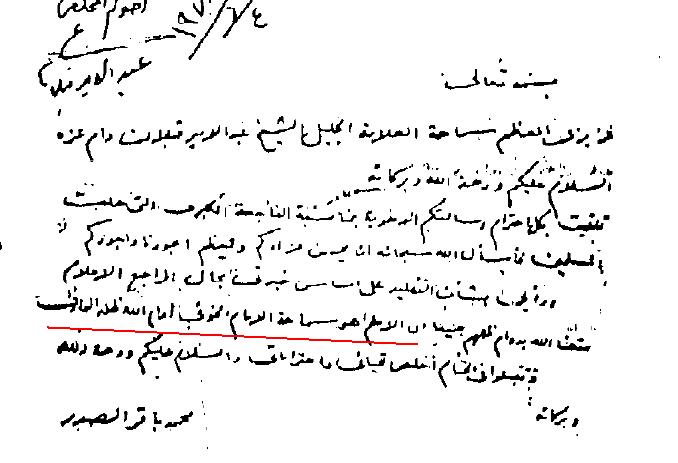 اخوكم المخلص
ع
٤/٧/١٩٧
عبد الامير قبلان
بسمه تعالى
عزيزي المعظم سماحة العلامة الجليل الشيخ عبد الامير قبلان دام عزه
السلام عليكم ورحمة الله وبركاته
تلقيت بكل احترام رسالتكم المرفوعة بمناسبة الفاجعة الكبرى التي حلت
بالمسلمين فأسأل الله سبحانه ان يحسن عزاءكم ويعظم اجورنا واجوركم
ورأينا بشأن التقليد على اساس خبرتنا بحال المراجع الاعلام
متعنا الله بدوام ظلهم جميعا ان الاعلم هو سماحة الامام الخوئي أدام الله ظله الوارف
وتقبلوا في الختام أخلص تحياتي واحتراماتي والسلام عليكم ورحمة الله
وبركاته
محمد باقر الصدر